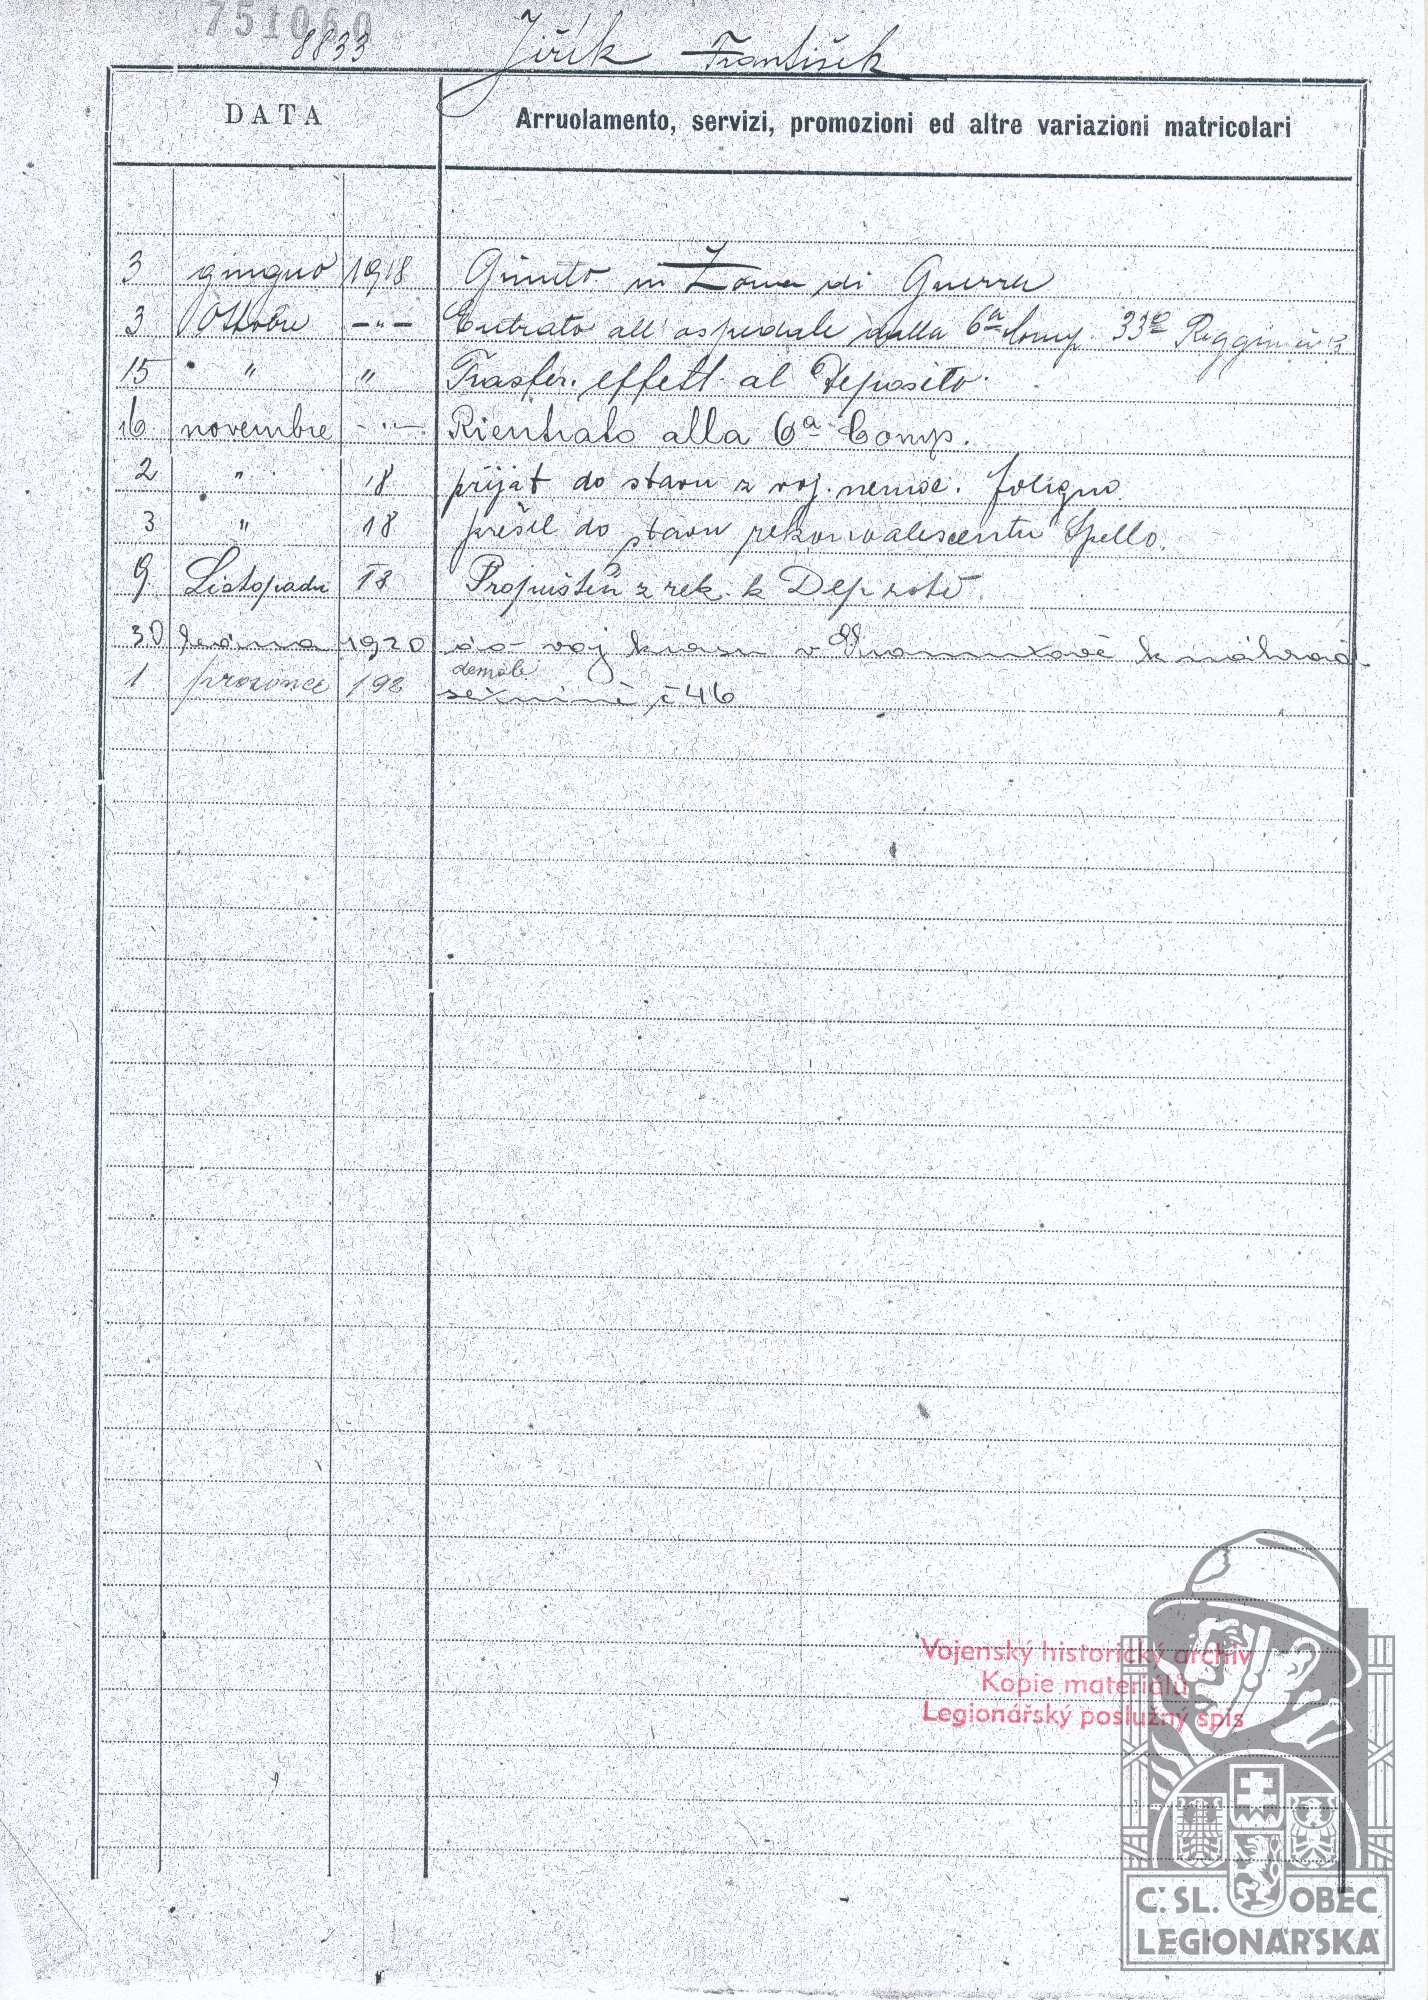 751060
8833 Jiřík František
DATA Arruolamento, servizi, promozioni ed altre variazioni matricolari
3 giugno 1918 Giunto in Zona di Guerra
3 Ottobre —"— Entrato all'ospedale dalla 6ª Comp. 33º
15 " " Trasfer. effett. al Deposito.
16 novembre —"— Rientrato alla 6ª Comp.
2 " 18 přijat do stavu z voj. nemoc. Foligno
3 " 18 přešel do stavu rekonvalescentů Spello.
9 Listopadu 18 Propuštěn z rek. k Deposit
30 1920 voj v k náhrad.
1 prosince 192 demob.
č 46
Vojenský historický archiv
Kopie materiálů
Legionářský poslužný spis
Č. SL. OBEC
LEGIONÁŘSKÁ